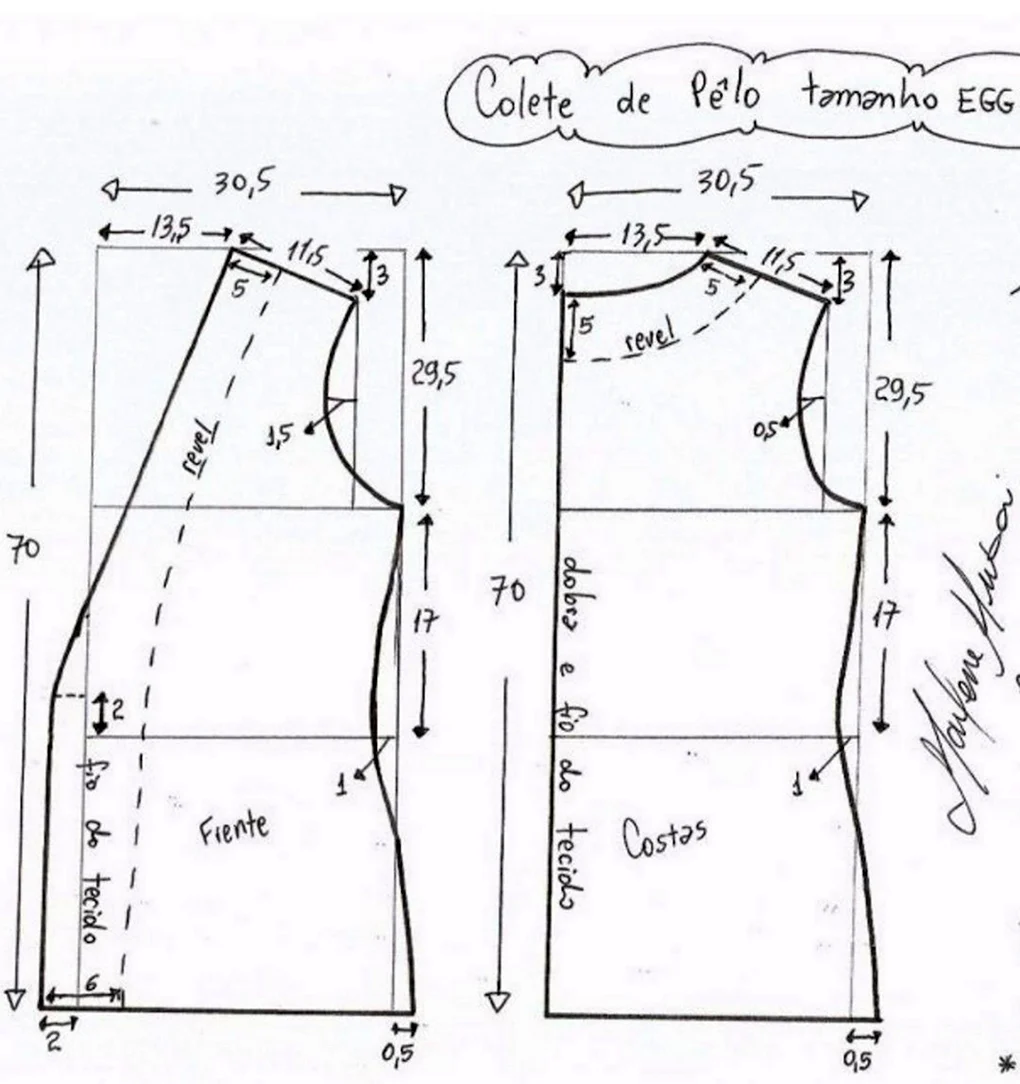 Colete de Pêlo tamanho EGG
30,5
13,5
11,5
3
5
29,5
revel
1,5
70
17
2
1
Frente
fio do tecido
6
2
0,5
30,5
13,5
11,5
3
3
5
5
revel
29,5
0,5
70
dobra e fio do tecido
17
1
Costas
0,5
*